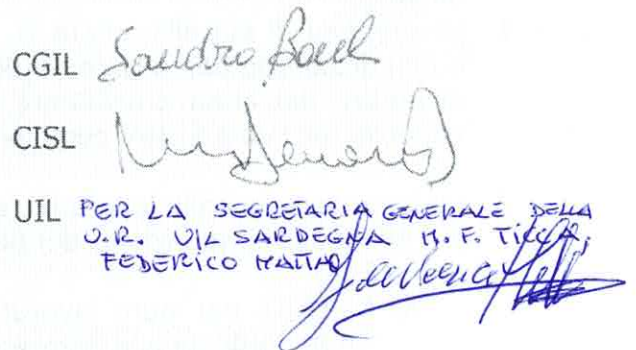 CGIL Sandro
CISL
UIL PER LA SEGRETARIA GENERALE DELLA
U.R. UIL SARDEGNA M. F. TICCA,
FEDERICO MATTA